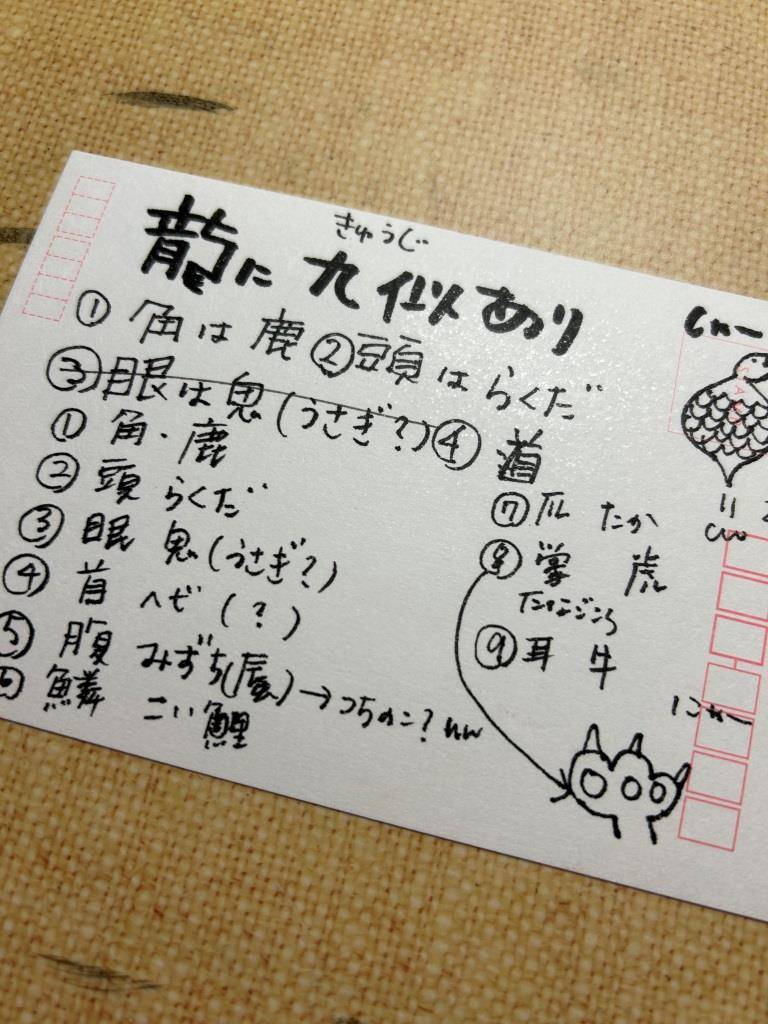 きゅうじ
龍に九似あり
① 角は鹿 ②頭はらくだ
③眼は鬼(うさぎ?)④
① 角・鹿
② 頭 らくだ
③ 眼 鬼(うさぎ?)
④ 首 ヘビ(?)
⑤ 腹 みずち(蜃)→つちのこ?ww
⑥ 鱗 こい 鯉
⑦ 爪 たか
⑧ 掌 虎
たなごころ
⑨ 耳 牛
にゃー